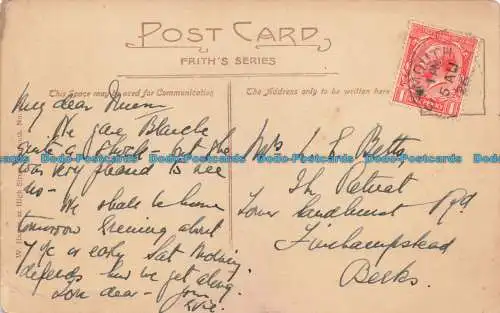 POST CARD
FRITH'S SERIES
This Space may be used for Communication
The Address only to be written here
My dear
We gave Blanche
quite a shock - but she
was very pleased to see
us -
We shall be home
tomorrow Evening about
7 or early Sat Morning
depends how we get along.
Love dear - from
Evie.
Mrs L E Betts,
The Retreat
Lower Sandhurst Rd
Finchampstead
Berks.
Dodo-Postcards.com Dodo-Postcards.com Dodo-Postcards.com Dodo-Postcards.com